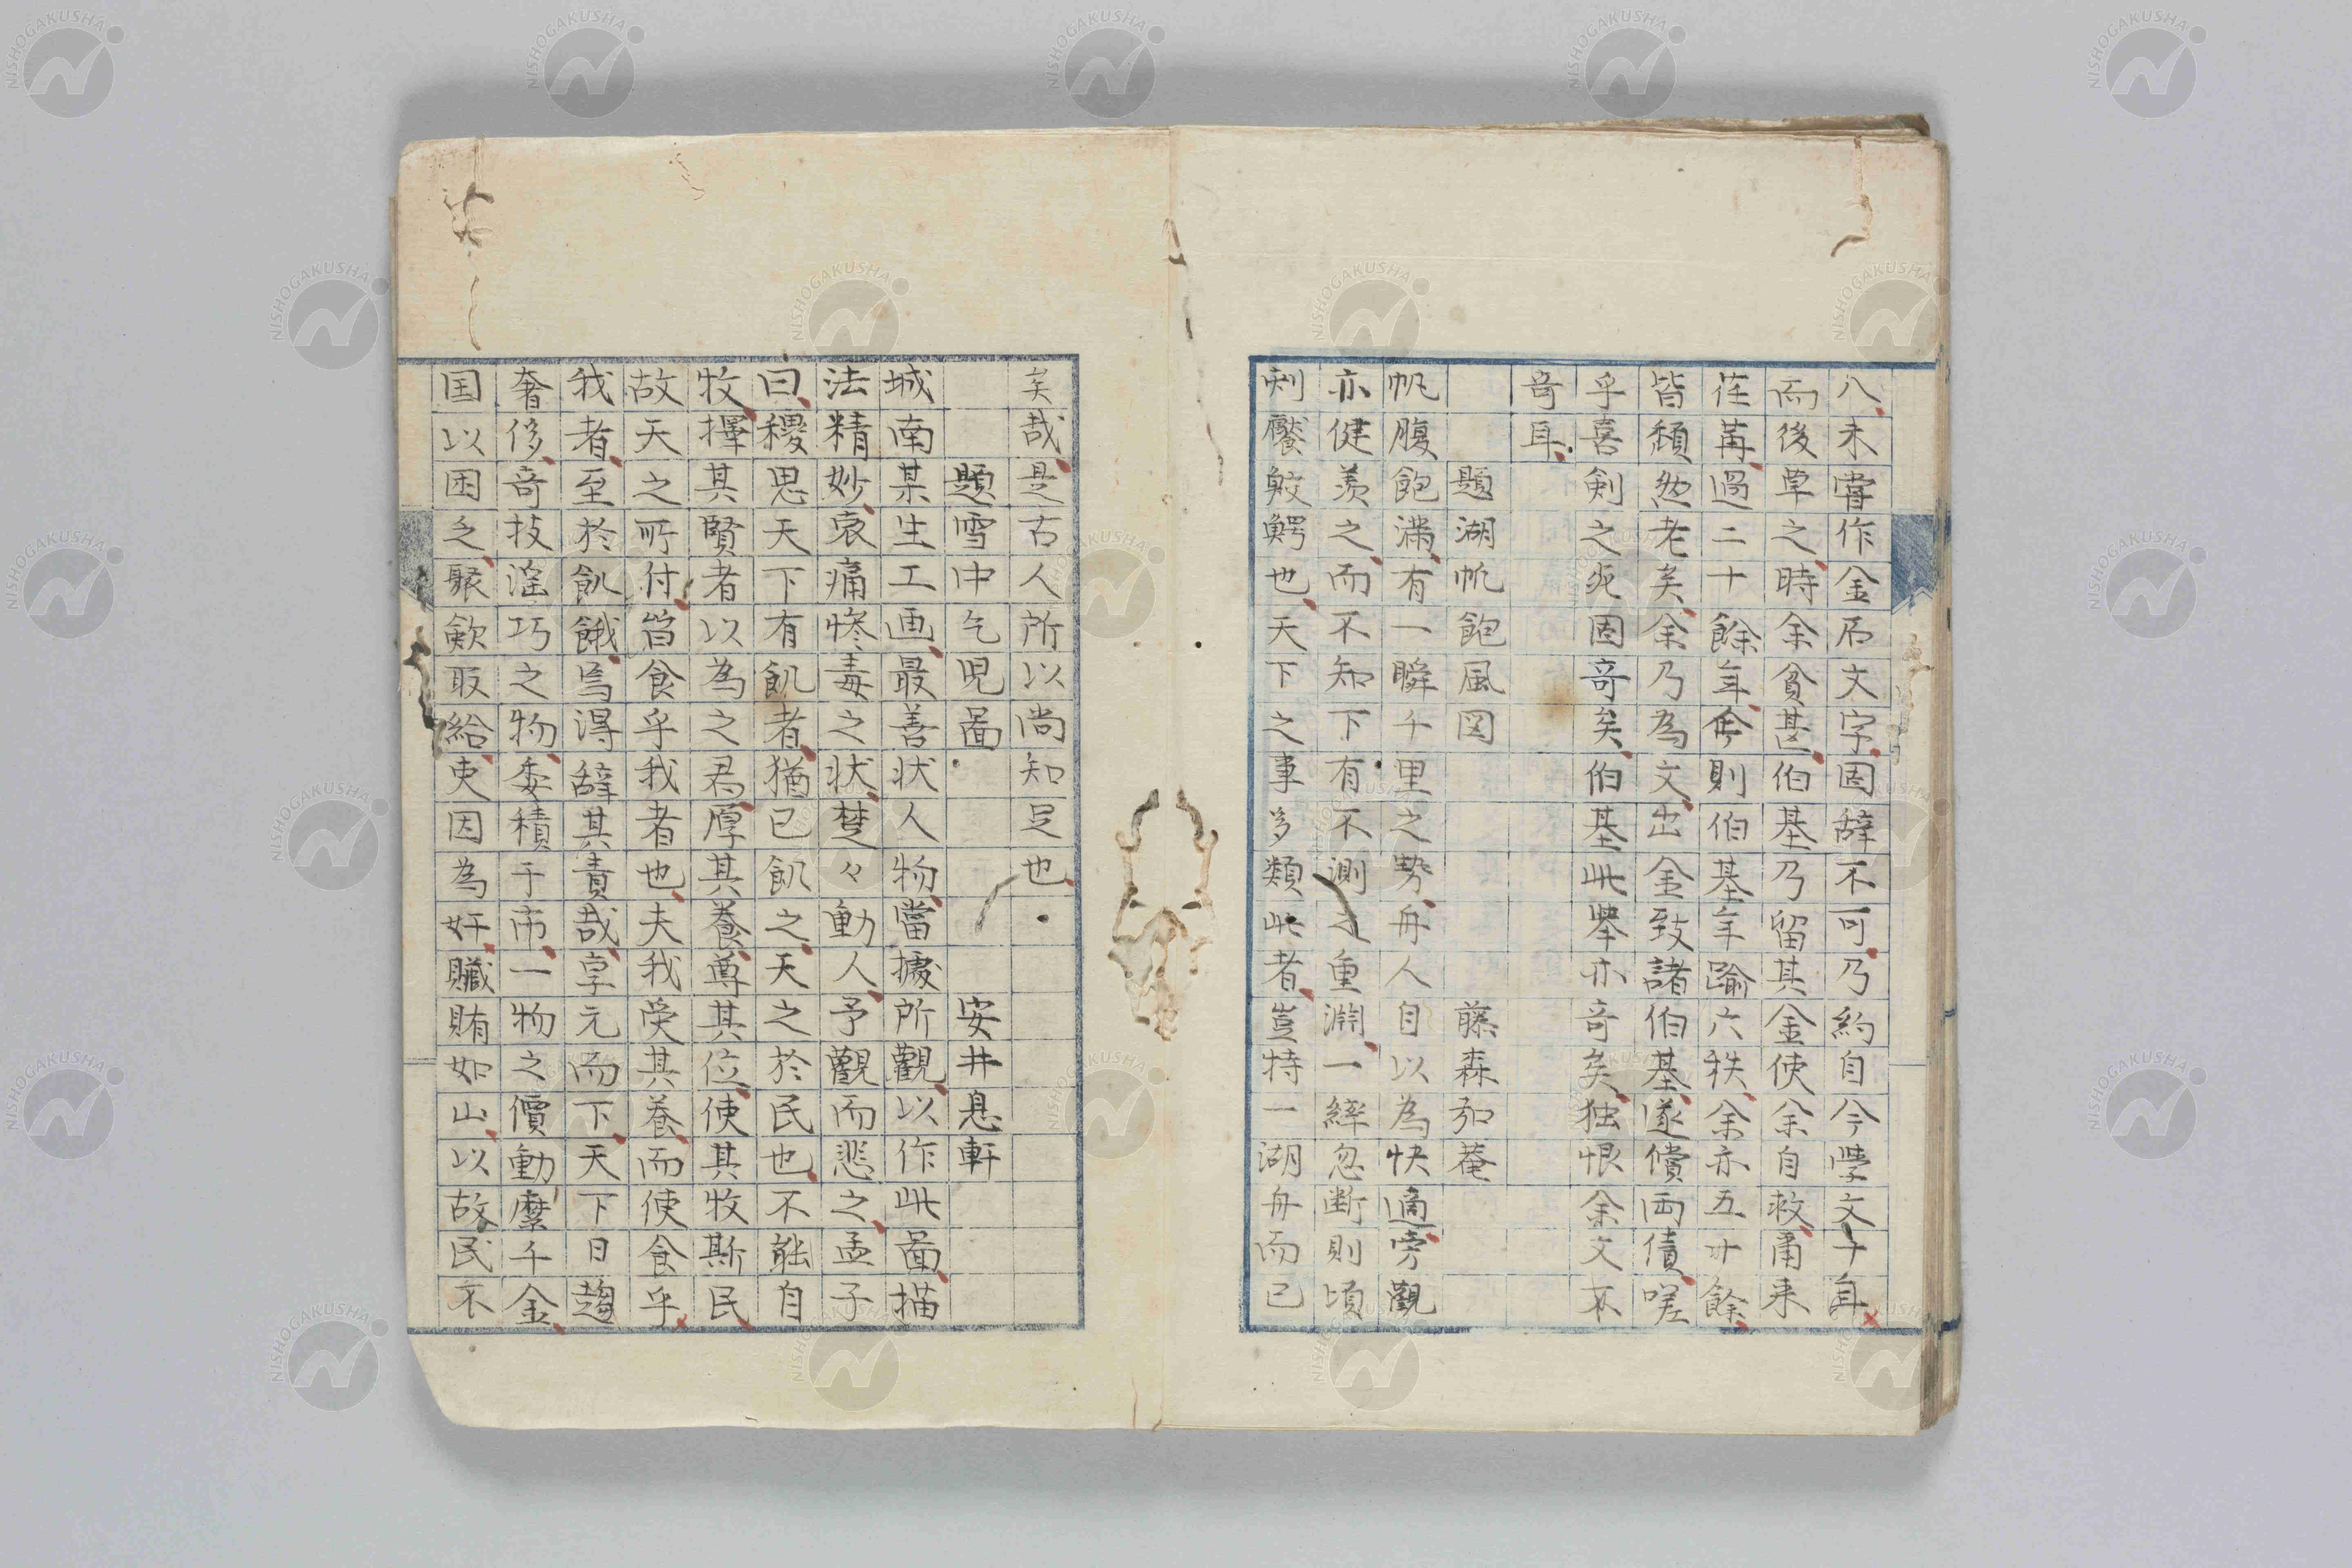 八未嘗作金石文字固辞不可乃約自今学文十年
而後草之時余貧甚伯基乃留其金使余自救甬来
荏苒過二十餘年今則伯基年踰六秩余亦五十餘
皆頽然老矣余乃為文出金致諸伯基遂償両債嗟
乎喜剣之死固奇矣伯基此挙亦奇矣独恨余文不
奇耳
題湖帆飽風図 藤森弘菴
帆腹飽満有一瞬千里之勢舟人自以為快適旁觀
亦健羨之而不知下有不測之重淵一繂忽断則頃
刻饜鮫鰐也天下之事多類此者豈特一湖舟而已
矣哉是古人所以尚知足也
題雪中乞児啚 安井息軒
城南某生工画最善状人物當據所觀以作此啚描
法精妙哀痛惨毒之状楚々動人予觀而悲之孟子
曰稷思天下有飢者猶已飢之天之於民也不能自
牧擇其賢者以為之君厚其養尊其位使其牧斯民
故天之所付皆食乎我者也夫我受其養而使食乎
我者至於飢餓烏得辞其責哉享元而下天下日趨
奢侈奇技淫巧之物委積于市一物之價動麋千金
国以困乏聚歛取給吏因為奸贓賄如山以故民不
NISHOGAKUSHA